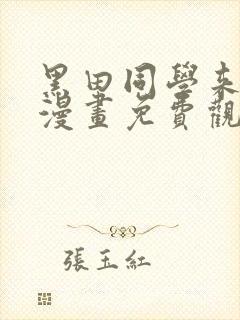 黑田同學來
漫畫免費觀
張玉紅